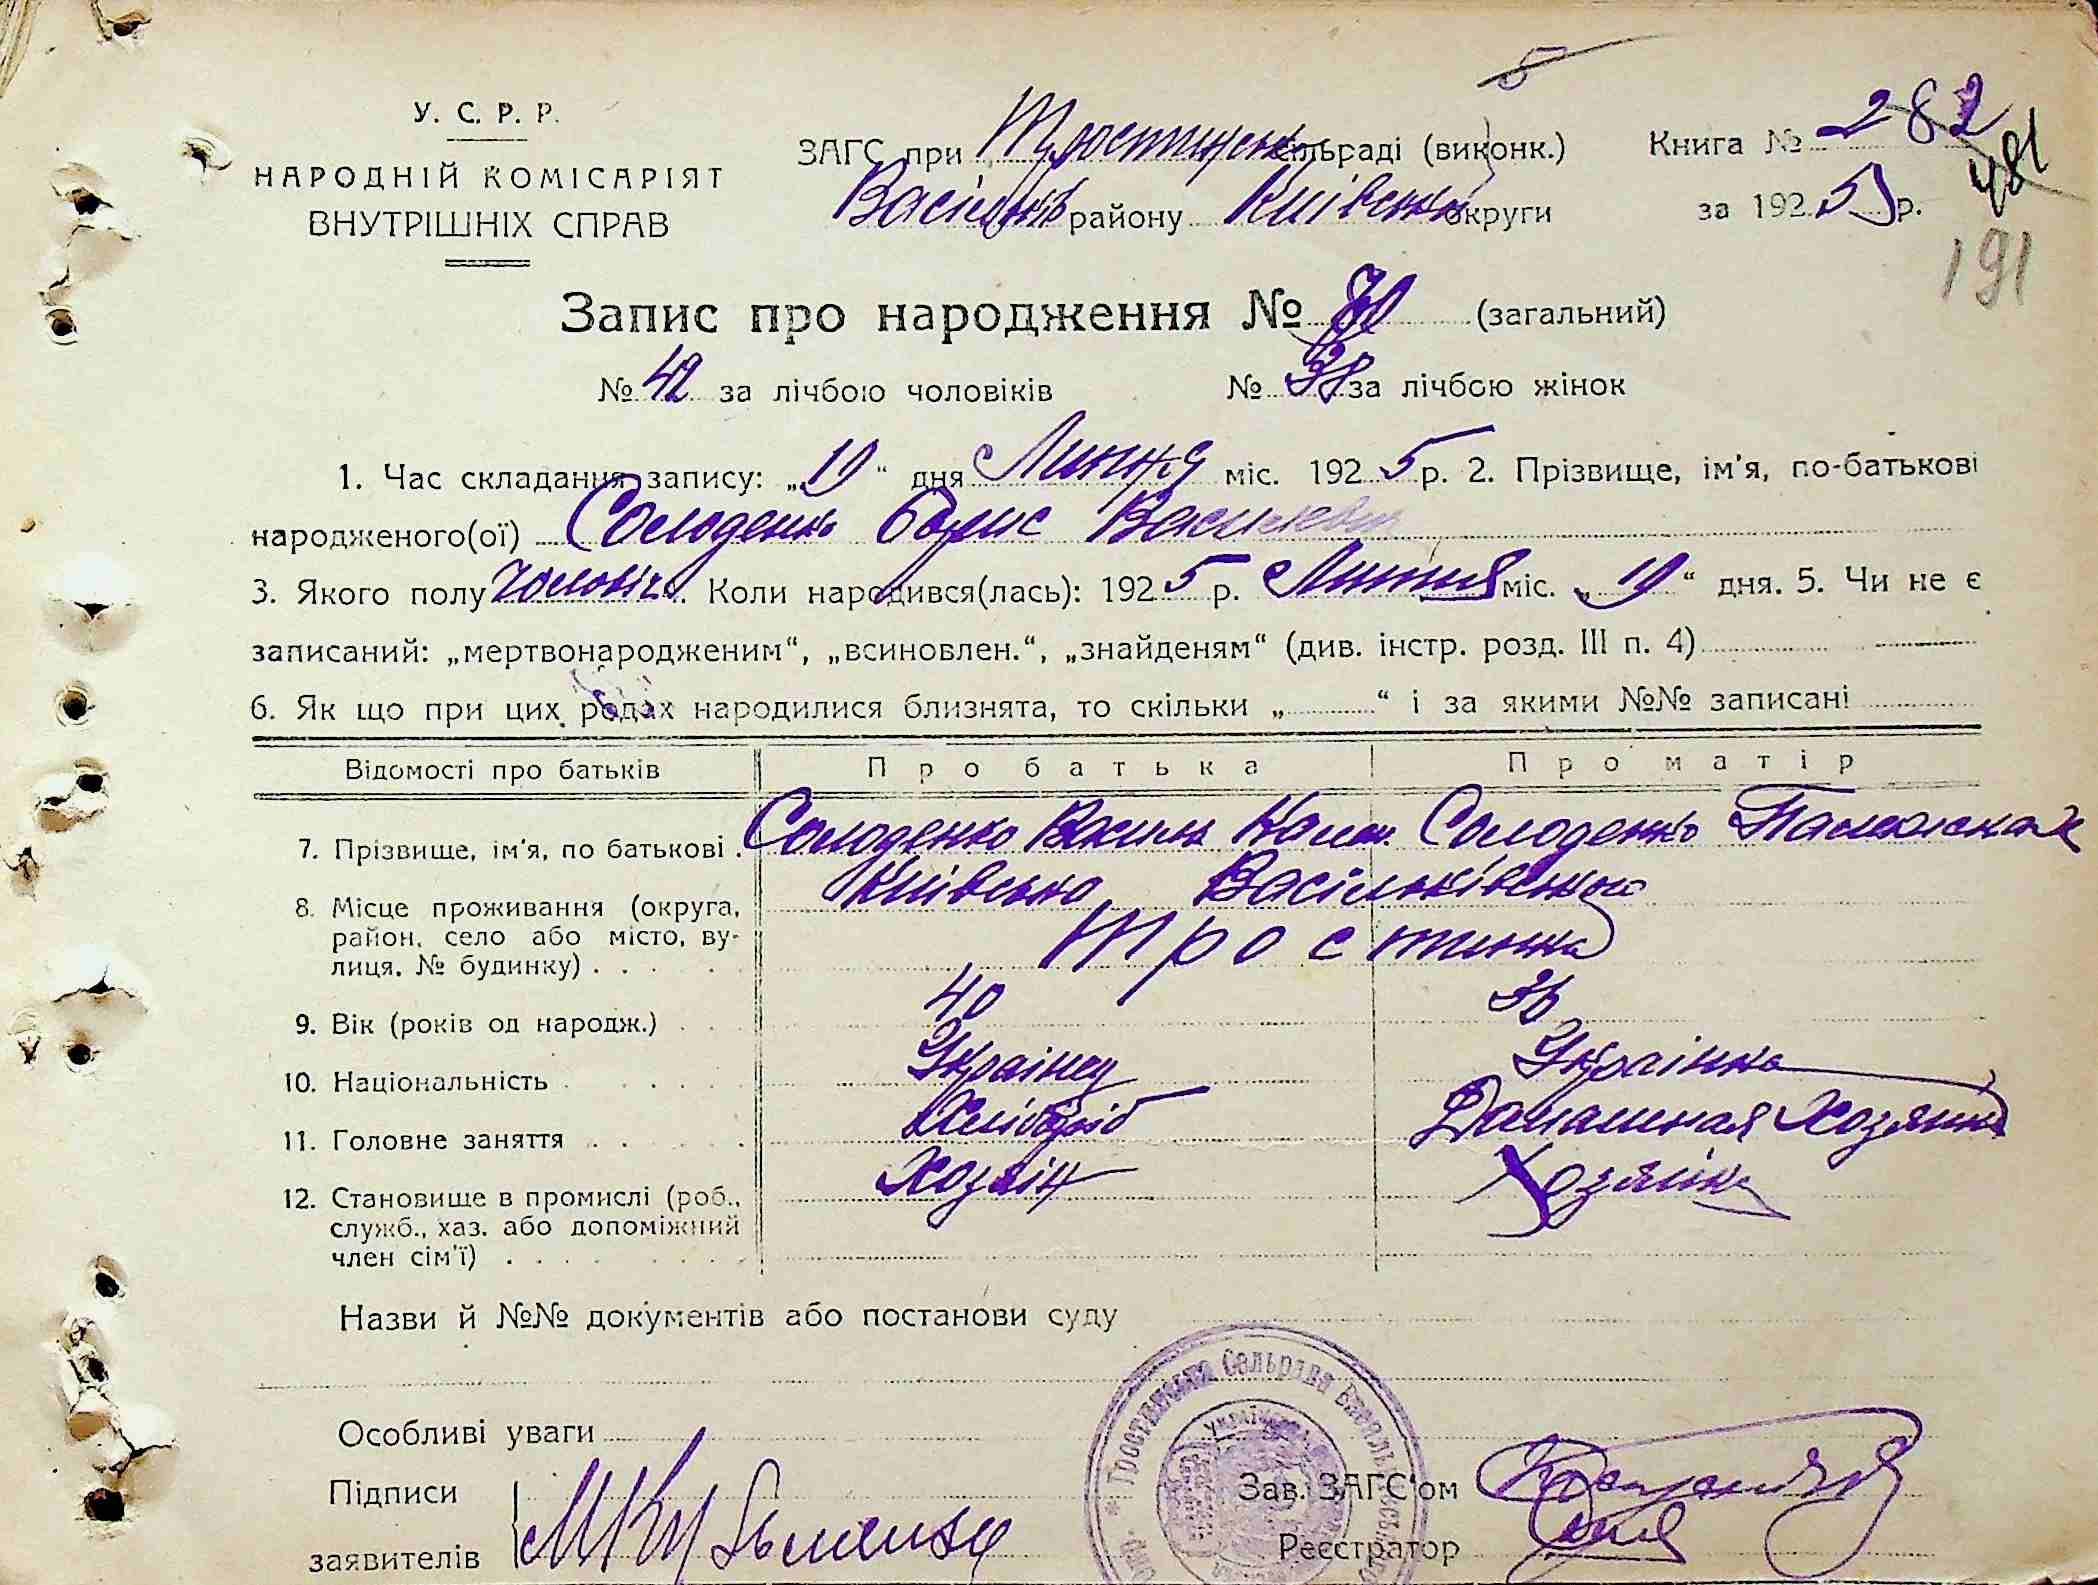 У. С. Р. Р.
НАРОДНІЙ КОМІСАРІЯТ
ВНУТРІШНІХ СПРАВ
ЗАГС при Тростинськ сільраді (виконк.)
району Київськ округи
Книга № 282
481
за 1925 р.
191
Запис про народження № (загальний)
№ 42 за лічбою чоловіків № 38 за лічбою жінок
1. Час складання запису: „19“ дня Липня міс. 1925 р. 2. Прізвище, ім'я, по-батькові
народженого(ої) Солоденко Борис Василев
3. Якого полу чоловіч. Коли народився(лась): 1925 р. Липня міс. „19“ дня. 5. Чи не є
записаний: „мертвонародженим“, „всиновлен.“, „знайденям“ (див. інстр. розд. III п. 4)
6. Як що при цих родах народилися близнята, то скільки „ “ і за якими №№ записані
Відомості про батьків Про батька Про матір
7. Прізвище, ім'я, по батькові Солоденко Василь Солоденко
8. Місце проживання (округа, Київська Васильківський
район, село або місто, ву- Тростинка
лиця. № будинку)
9. Вік (років од народж.) 40 36
10. Національність Українец Українка
11. Головне заняття Хлібороб Домашная Хозяйка
12. Становище в промислі (роб., Хозяін Хозяйка
служб., хаз. або допоміжний
член сім'ї)
Назви й №№ документів або постанови суду
Особливі уваги
Підписи
заявителів
Тростинська Сельрада
Зав. ЗАГС'ом
Реєстратор